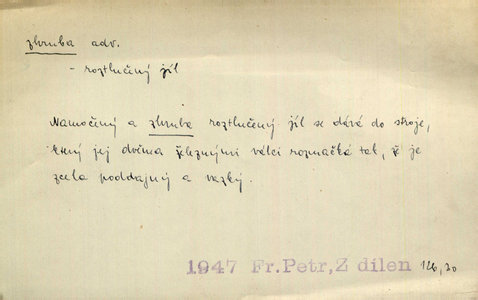 zhruba adv.
- roztlučený jíl
Namočený a zhruba roztlučený jíl se dává do stroje,
který jej dvěma železnými válci rozmačká tak, že je
zcela poddajný a vazký.
1947 Fr.Petr,Z dílen 126,20